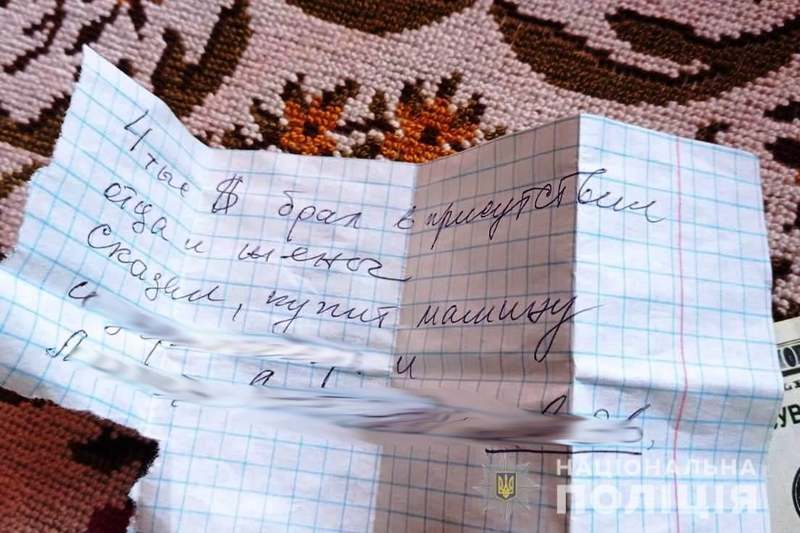 4 тыс $ брал в присутствии
отца и жены
Сказал, купит машину
и
НАЦІОНАЛЬНА
ПОЛІЦІЯ